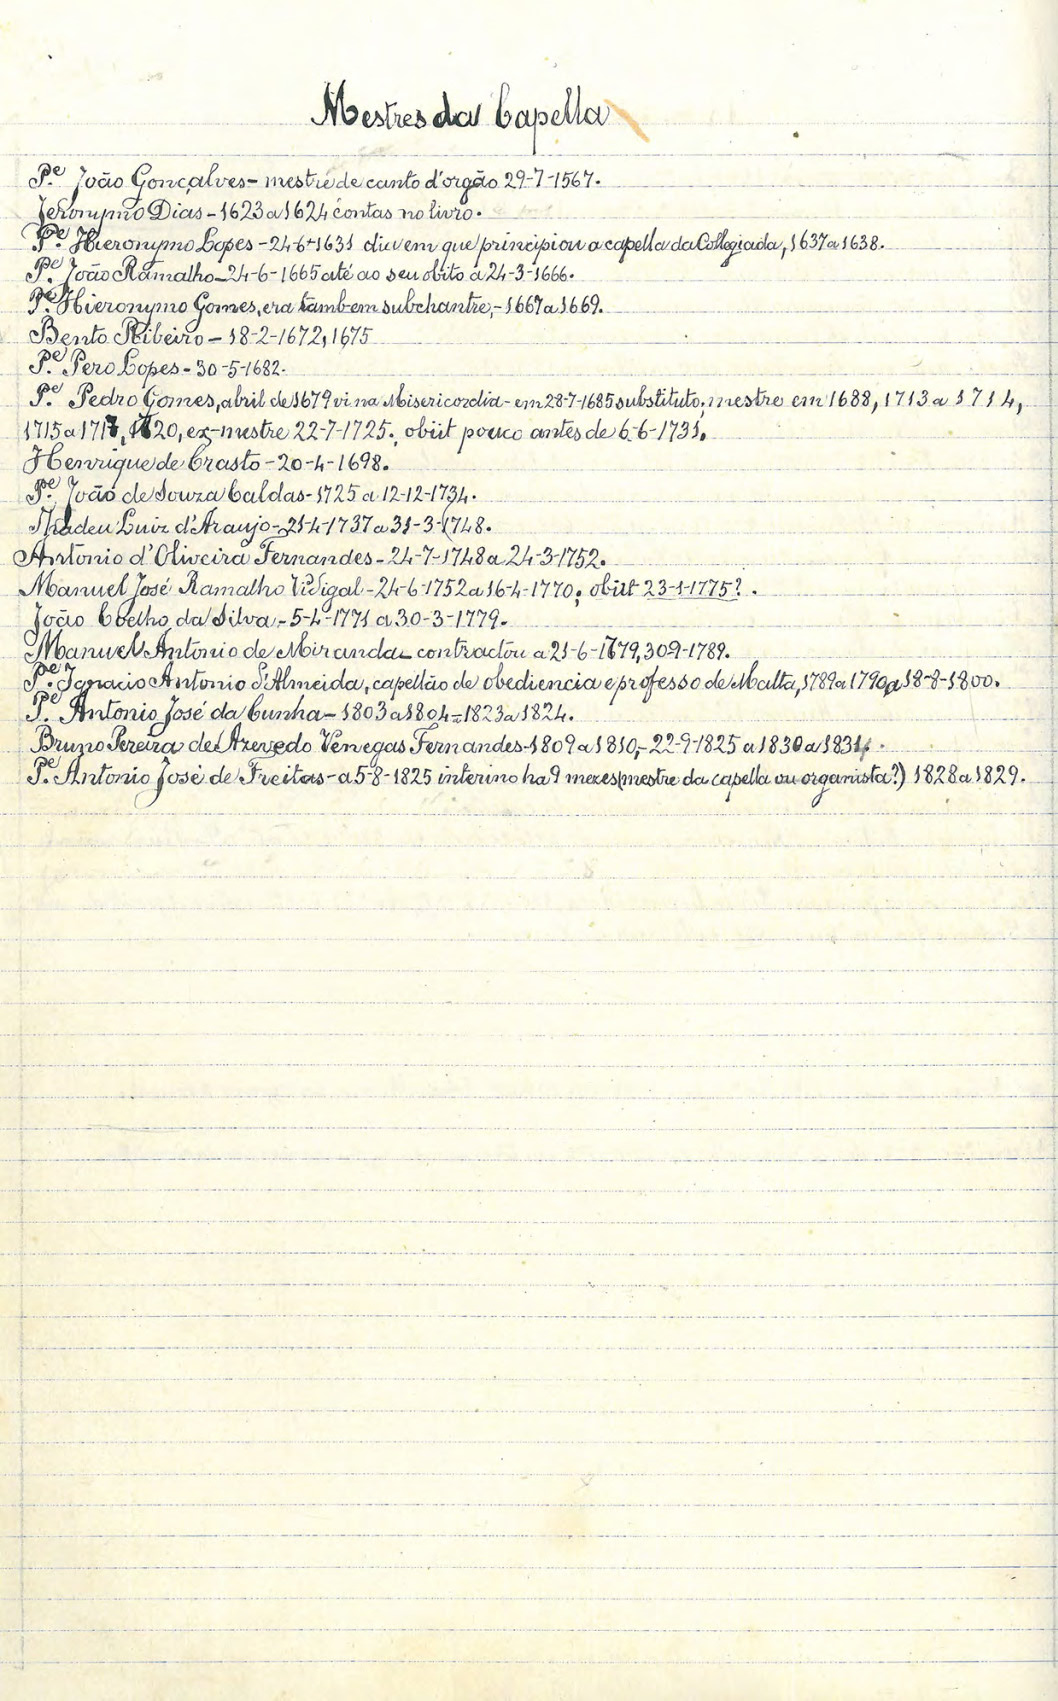 Mestres da Capella
P.e João Gonçalves - mestre de canto d'orgão 29-7-1567.
Jeronymo Dias - 1623 a 1624 contas no livro.
P.e Hieronymo Lopes - 24-6-1631 dia em que principiou a capella da Collegiada, 1637 a 1638.
P.e João Ramalho - 24-6-1665 até ao seu obito a 24-3-1666.
P.e Hieronymo Gomes, era tambem subchantre, - 1667 a 1669.
Bento Ribeiro - 18-2-1672, 1675
P.e Pero Lopes - 30-5-1682.
P.e Pedro Gomes, abril de 1679 vi na Misericordia - em 28-7-1685 substituto, mestre em 1688, 1713 a 1714,
1715 a 1717, 1720, ex-mestre 22-7-1725., obiit pouco antes de 6-6-1731.
Henrique de Crasto - 20-4-1698.
P.e João de Souza Caldas - 1725 a 12-12-1734.
Thadeu Luiz d'Araujo - 21-4-1737 a 31-3-1748.
Antonio d'Oliveira Fernandes - 24-7-1748 a 24-3-1752.
Manuel José Ramalho Vidigal - 24-6-1752 a 16-4-1770; obiit 23-1-1775? .
João Coelho da Silva - 5-4-1771 a 30-3-1779.
Manuel Antonio de Miranda - contractou a 21-6-1679, 30-9-1789.
P.e Ignacio Antonio d'Almeida, capellão de obediencia e professo de Malta, 1789 a 1790, a 18-8-1800.
P.e Antonio José da Cunha - 1803 a 1804 = 1823 a 1824.
Bruno Pereira de Azevedo Venegas Fernandes - 1809 a 1810, - 22-9-1825 a 1830 a 1831.
P.e Antonio José de Freitas - a 5-8-1825 interino ha 9 mezes (mestre da capella ou organista?) 1828 a 1829.